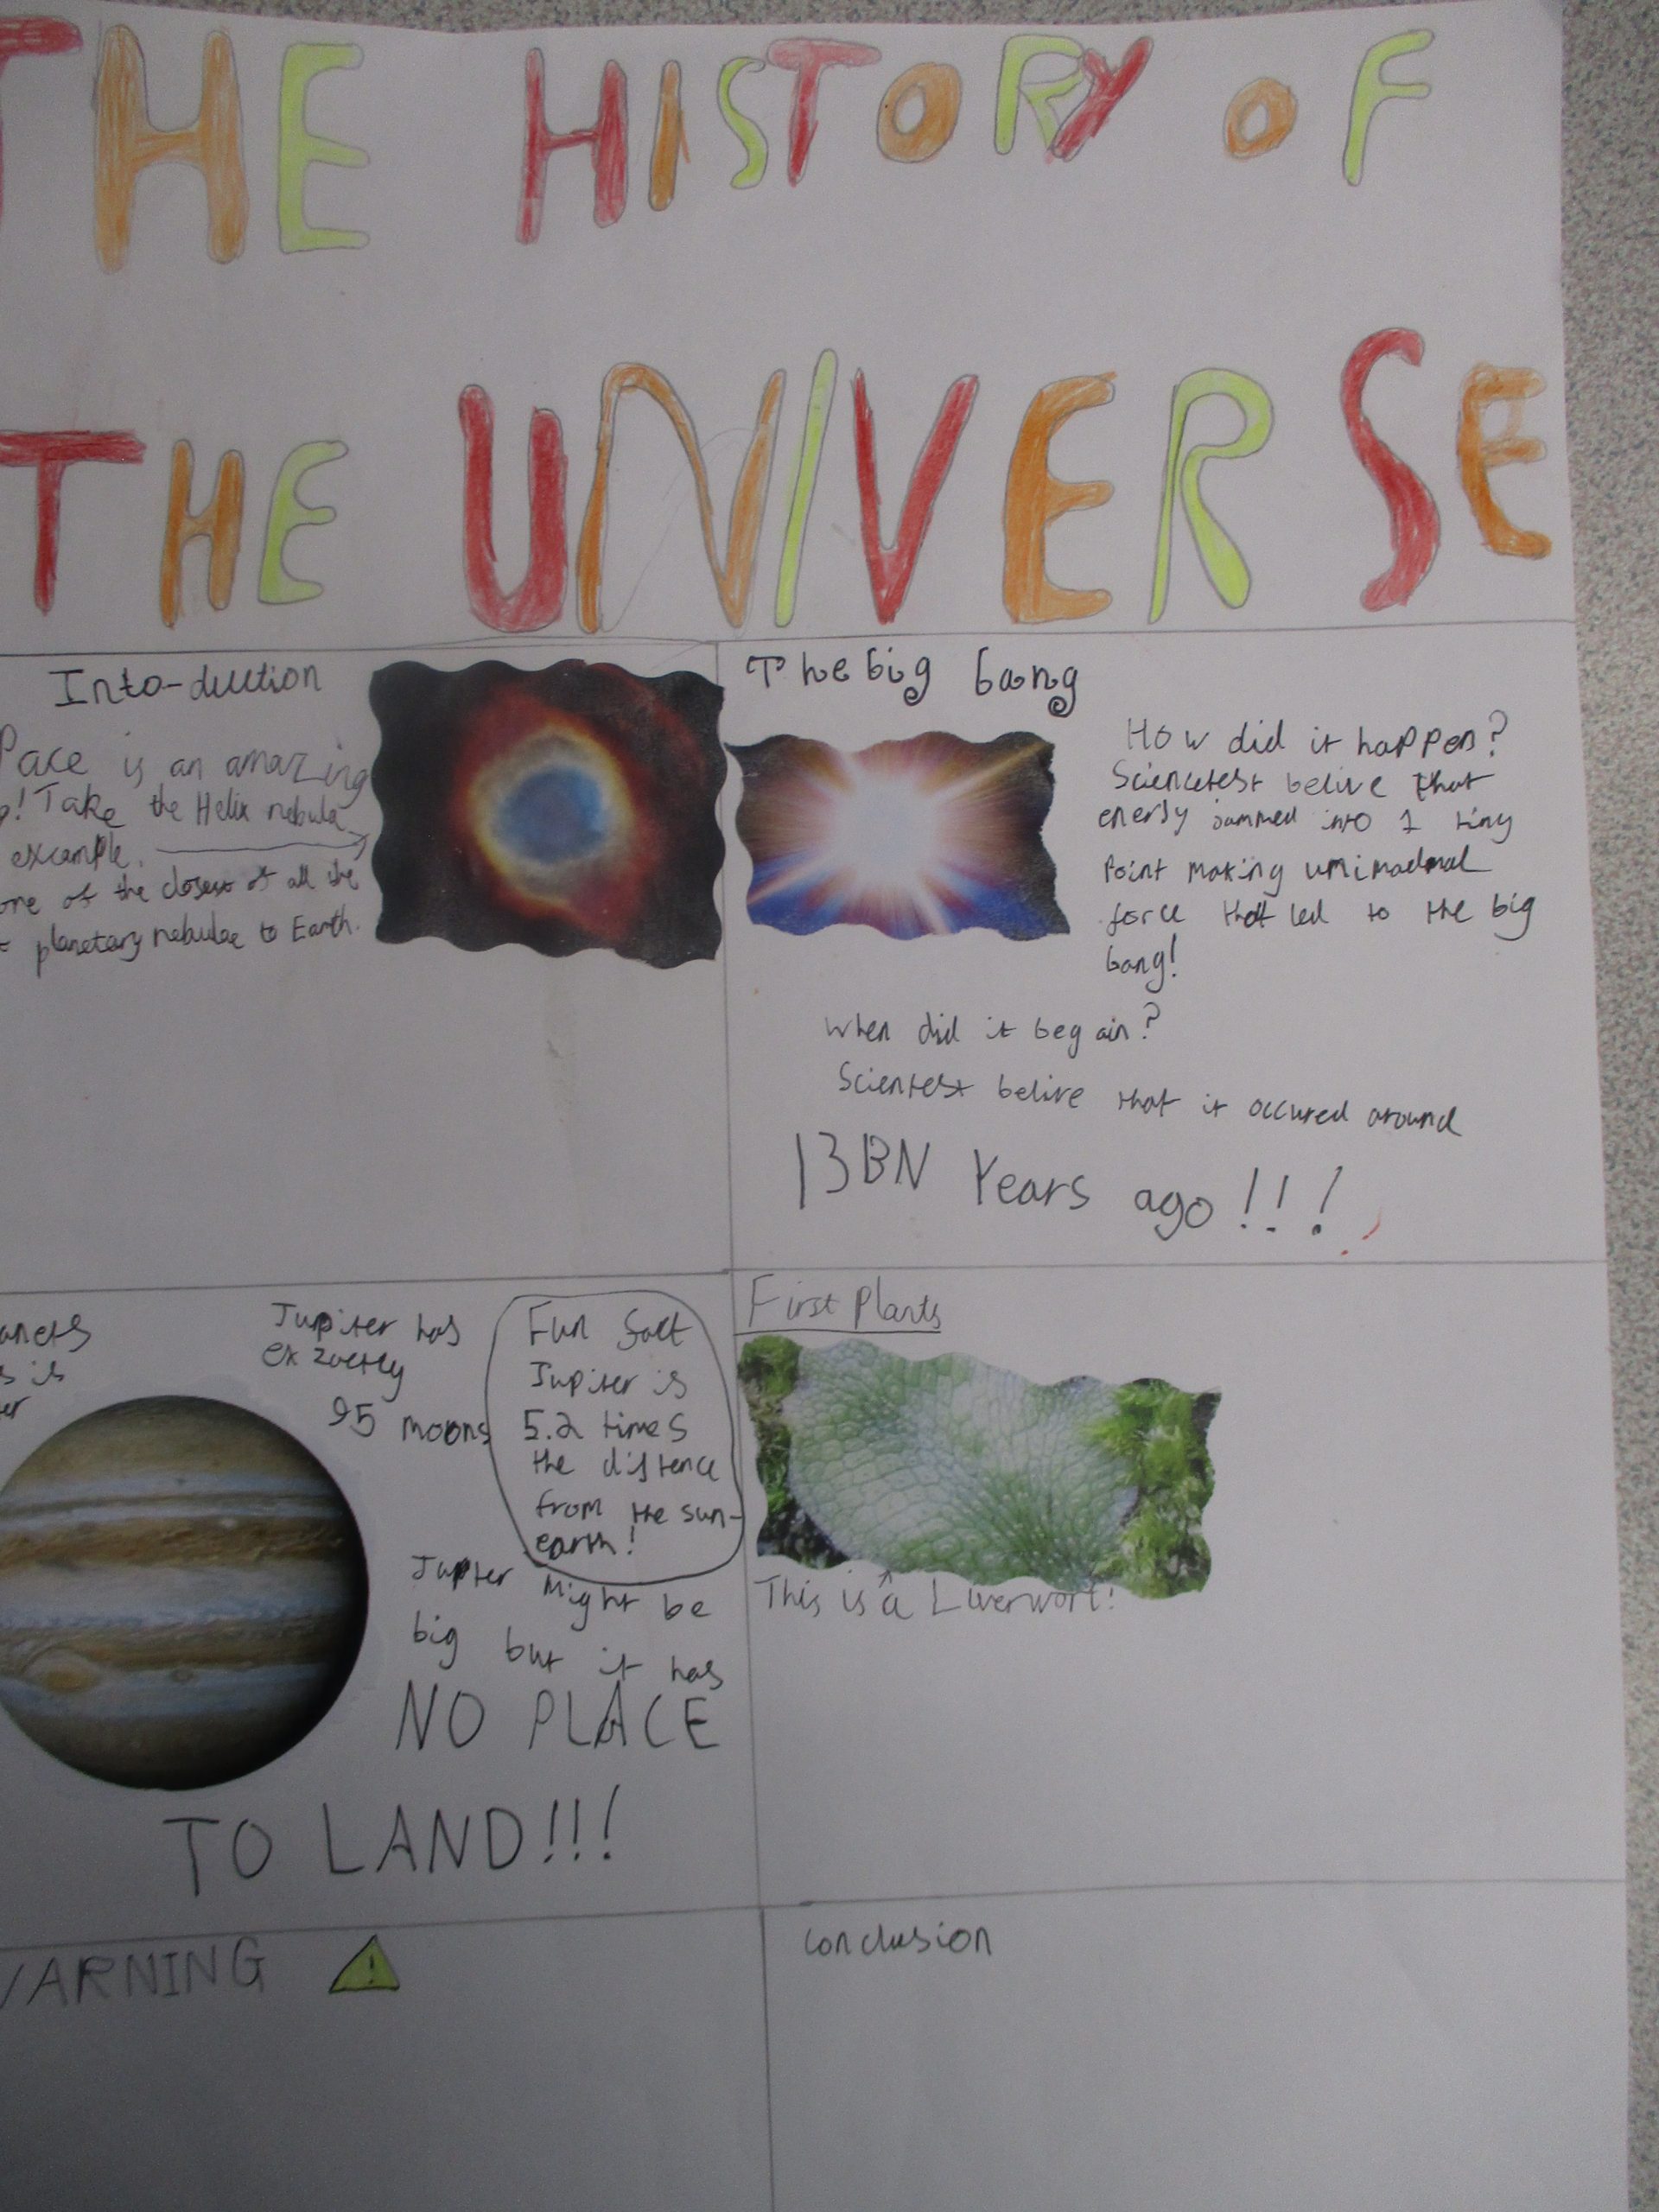 THE HISTORY OF
THE UNIVERSE
Into-duction
Pace is an amazing
! Take the Helix nebula
example.
one of the closest of all the
planetary nebulae to Earth.
The big bang
How did it happen?
Scienctest belive that
energy jammed into 1 tiny
Point making
force that led to the big
bang!
when did it beg ain?
Scientest belive that it occured around
13BN Years ago!!!
anets
s is
er
Jupiter has
exzactly
95 moons
Fun fact
Jupiter is
5.2 times
the distence
from the sun-
earth!
Jupter might be
big but it has
NO PLACE
TO LAND!!!
First Plants
This is a Liverwort!
WARNING !
conclusion